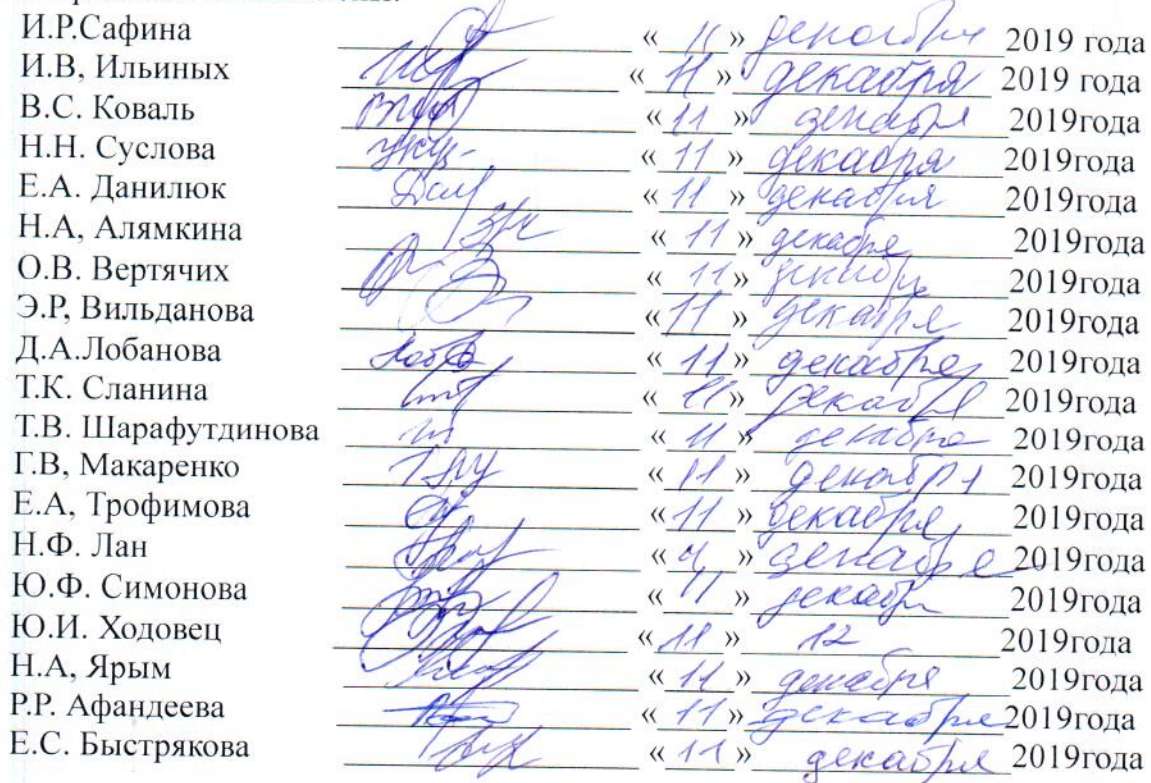 И.Р.Сафина « 11 » декабря 2019 года
И.В, Ильиных « 11 » декабря 2019 года
В.С. Коваль « 11 » декабря 2019года
Н.Н. Суслова « 11 » декабря 2019года
Е.А. Данилюк « 11 » декабря 2019года
Н.А, Алямкина « 11 » декабря 2019года
О.В. Вертячих « 11 » декабря 2019года
Э.Р, Вильданова « 11 » декабря 2019года
Д.А.Лобанова « 11 » декабря 2019года
Т.К. Сланина « 11 » декабря 2019года
Т.В. Шарафутдинова « 11 » декабря 2019года
Г.В, Макаренко « 11 » декабря 2019года
Е.А, Трофимова « 11 » декабря 2019года
Н.Ф. Лан « » декабря 2019года
Ю.Ф. Симонова « 11 » декабря 2019года
Ю.И. Ходовец « 11 » 12 2019года
Н.А, Ярым « 11 » декабря 2019года
Р.Р. Афандеева « 11 » декабря 2019года
Е.С. Быстрякова « 11 » декабря 2019года